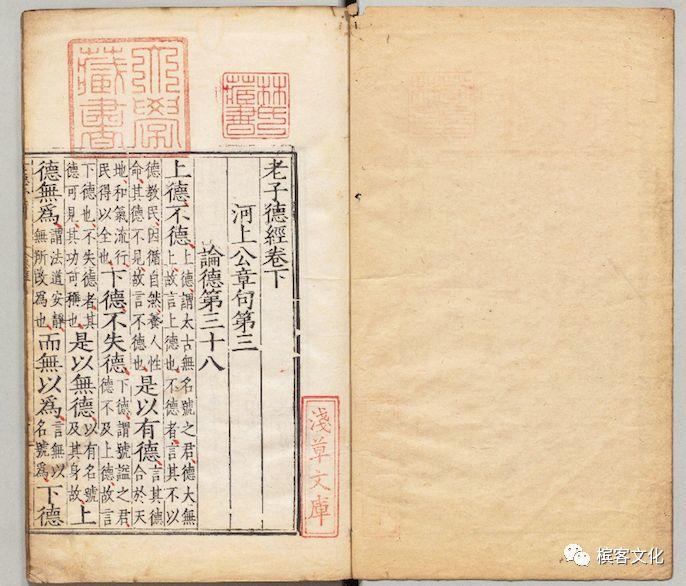 大學藏書
林氏藏書
老子德經卷下
河上公章句第三
論德第三十八
上德不德上德謂太古無名號之君德大無上故言上德也不德者言其不以
德教民因循自然養人性命其德不見故言不德也是以有德言其德合於天
地和氣流行民得以全也下德不失德下德謂號謚之君德不及上德故言
下德也不失德者其德可見其功可稱也是以無德以有名號及其身故上
德無為謂法道安靜無所改為也而無以為言無以名號為下德
淺草文庫
槟客文化